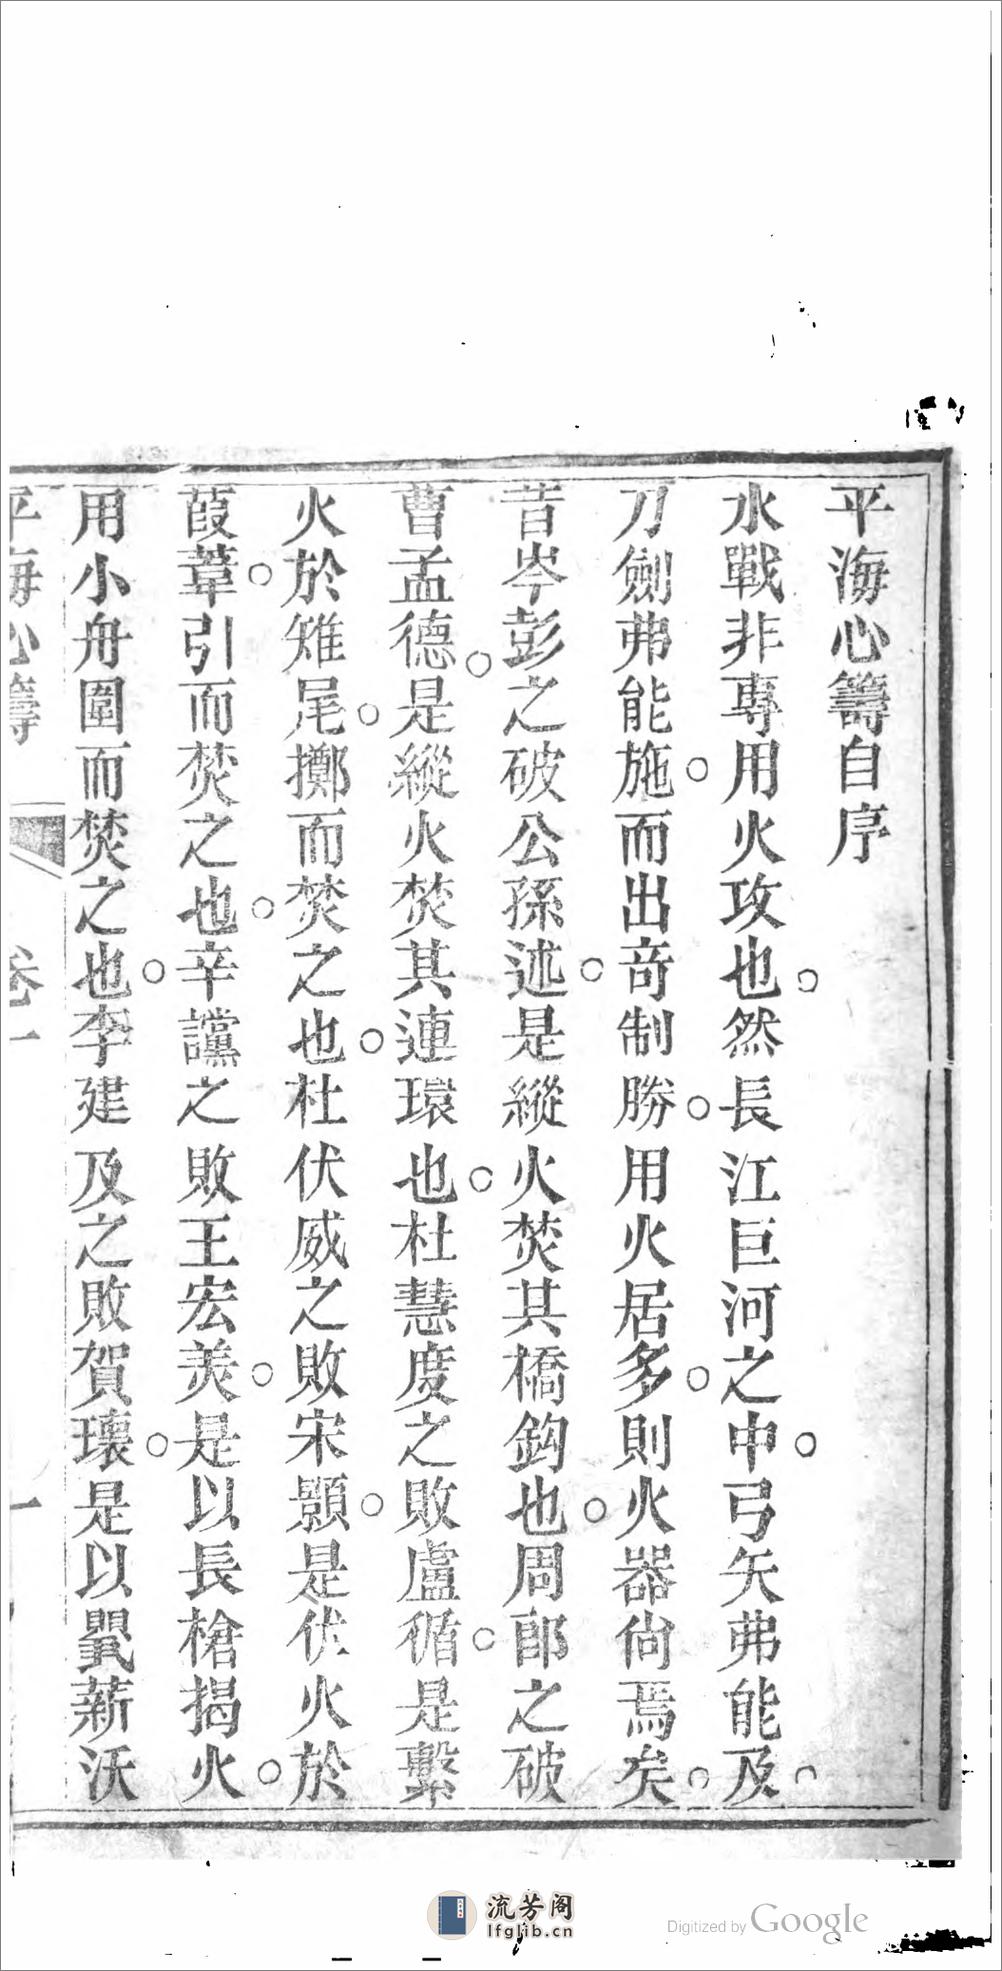 平海心籌自序
水戰非專用火攻也。然長江巨河之中。弓矢弗能及。
刀劍弗能施。而出奇制勝。用火居多。則火器尙焉矣。
昔岑彭之破公孫述。是縱火焚其橋鈎也。周郎之破
曹孟德。是縱火焚其連環也。杜慧度之敗盧循。是繫
火於雉尾。擲而焚之也。杜伏威之敗宋顥。是伏火於
葭葦。引而焚之也。辛讜之敗王宏芰。是以長槍揭火。
用小舟圍而焚之也。李建及之敗賀瓌。是以甖薪沃
平海心籌
卷一
一
流芳阁
lfglib.cn
Digitized by Google